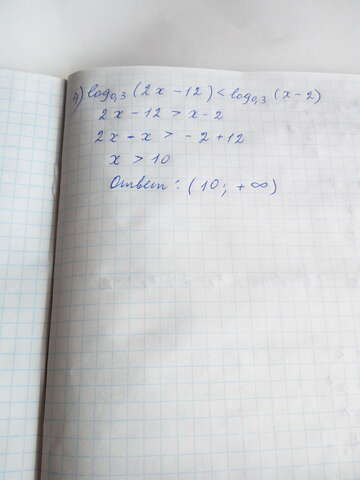 g) log₀,₃ (2x - 12) < log₀,₃ (x - 2)
2x - 12 > x - 2
2x - x > - 2 + 12
x > 10
Ответ: (10; + ∞)